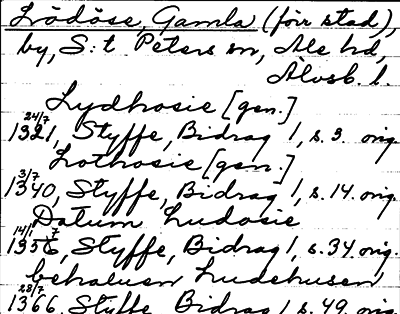 Lödöse, Gamla (förr stad),
by, S:t Peters sn, Ale hd,
Älvsb. l.
Lydhosie [gen.]
24/7 1321, Styffe, Bidrag 1, s. 3. orig.
Lothosie [gen.]
3/7 1340, Styffe, Bidrag 1, s. 14. orig.
Datum Ludosie
1356, Styffe, Bidrag 1, s. 34. orig.
Ludehusen
28/7 1366, Styffe, Bidrag 1, s. 49. orig.